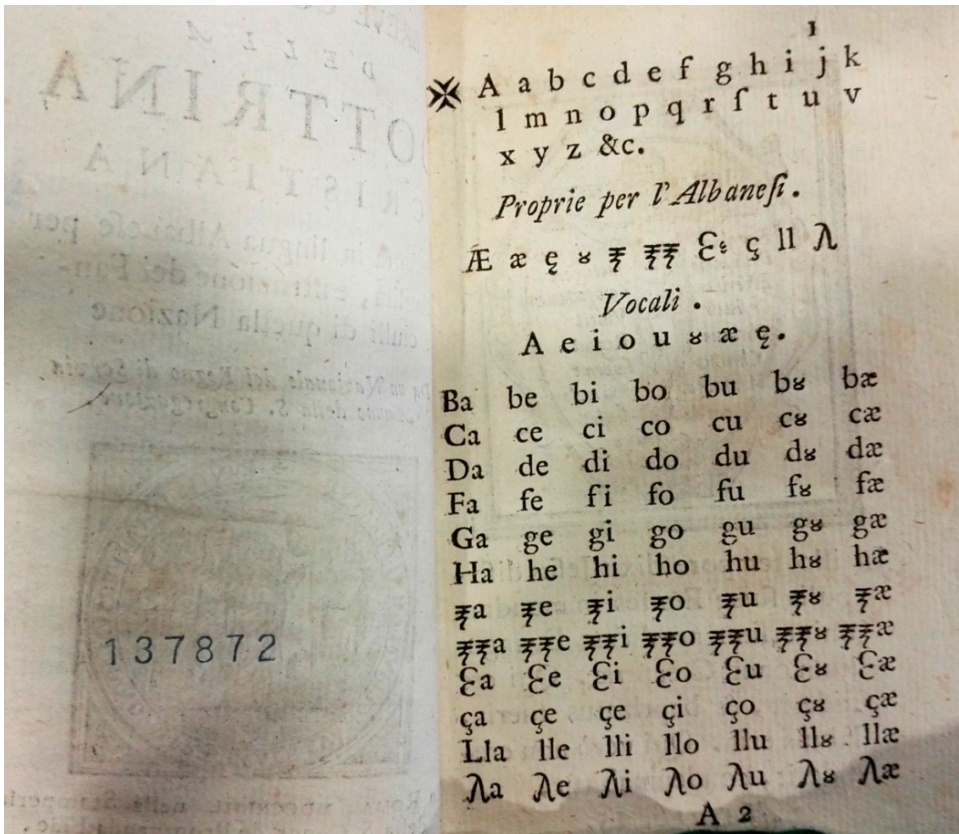 137872
1
✠ A a b c d e f g h i j k
l m n o p q r ſ t u v
x y z &c.
Proprie per l'Albaneſi.
Æ æ ę ȣ ₹ ₹₹ Ɛ ɛ ç ll λ
Vocali.
A e i o u ȣ æ ę.
Ba be bi bo bu bȣ bæ
Ca ce ci co cu cȣ cæ
Da de di do du dȣ dæ
Fa fe fi fo fu fȣ fæ
Ga ge gi go gu gȣ gæ
Ha he hi ho hu hȣ hæ
₹a ₹e ₹i ₹o ₹u ₹ȣ ₹æ
₹₹a ₹₹e ₹₹i ₹₹o ₹₹u ₹₹ȣ ₹₹æ
Ɛa Ɛe Ɛi Ɛo Ɛu Ɛȣ Ɛæ
ça çe çe çi ço çȣ çæ
Lla lle lli llo llu llȣ llæ
λa λe λi λo λu λȣ λæ
A 2